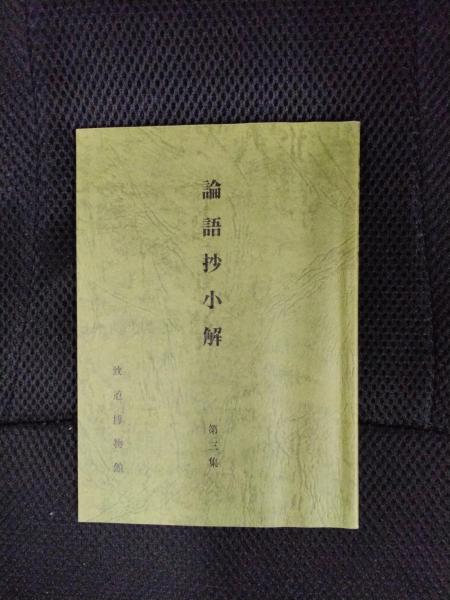 論語抄小解
第三集
致道博物館